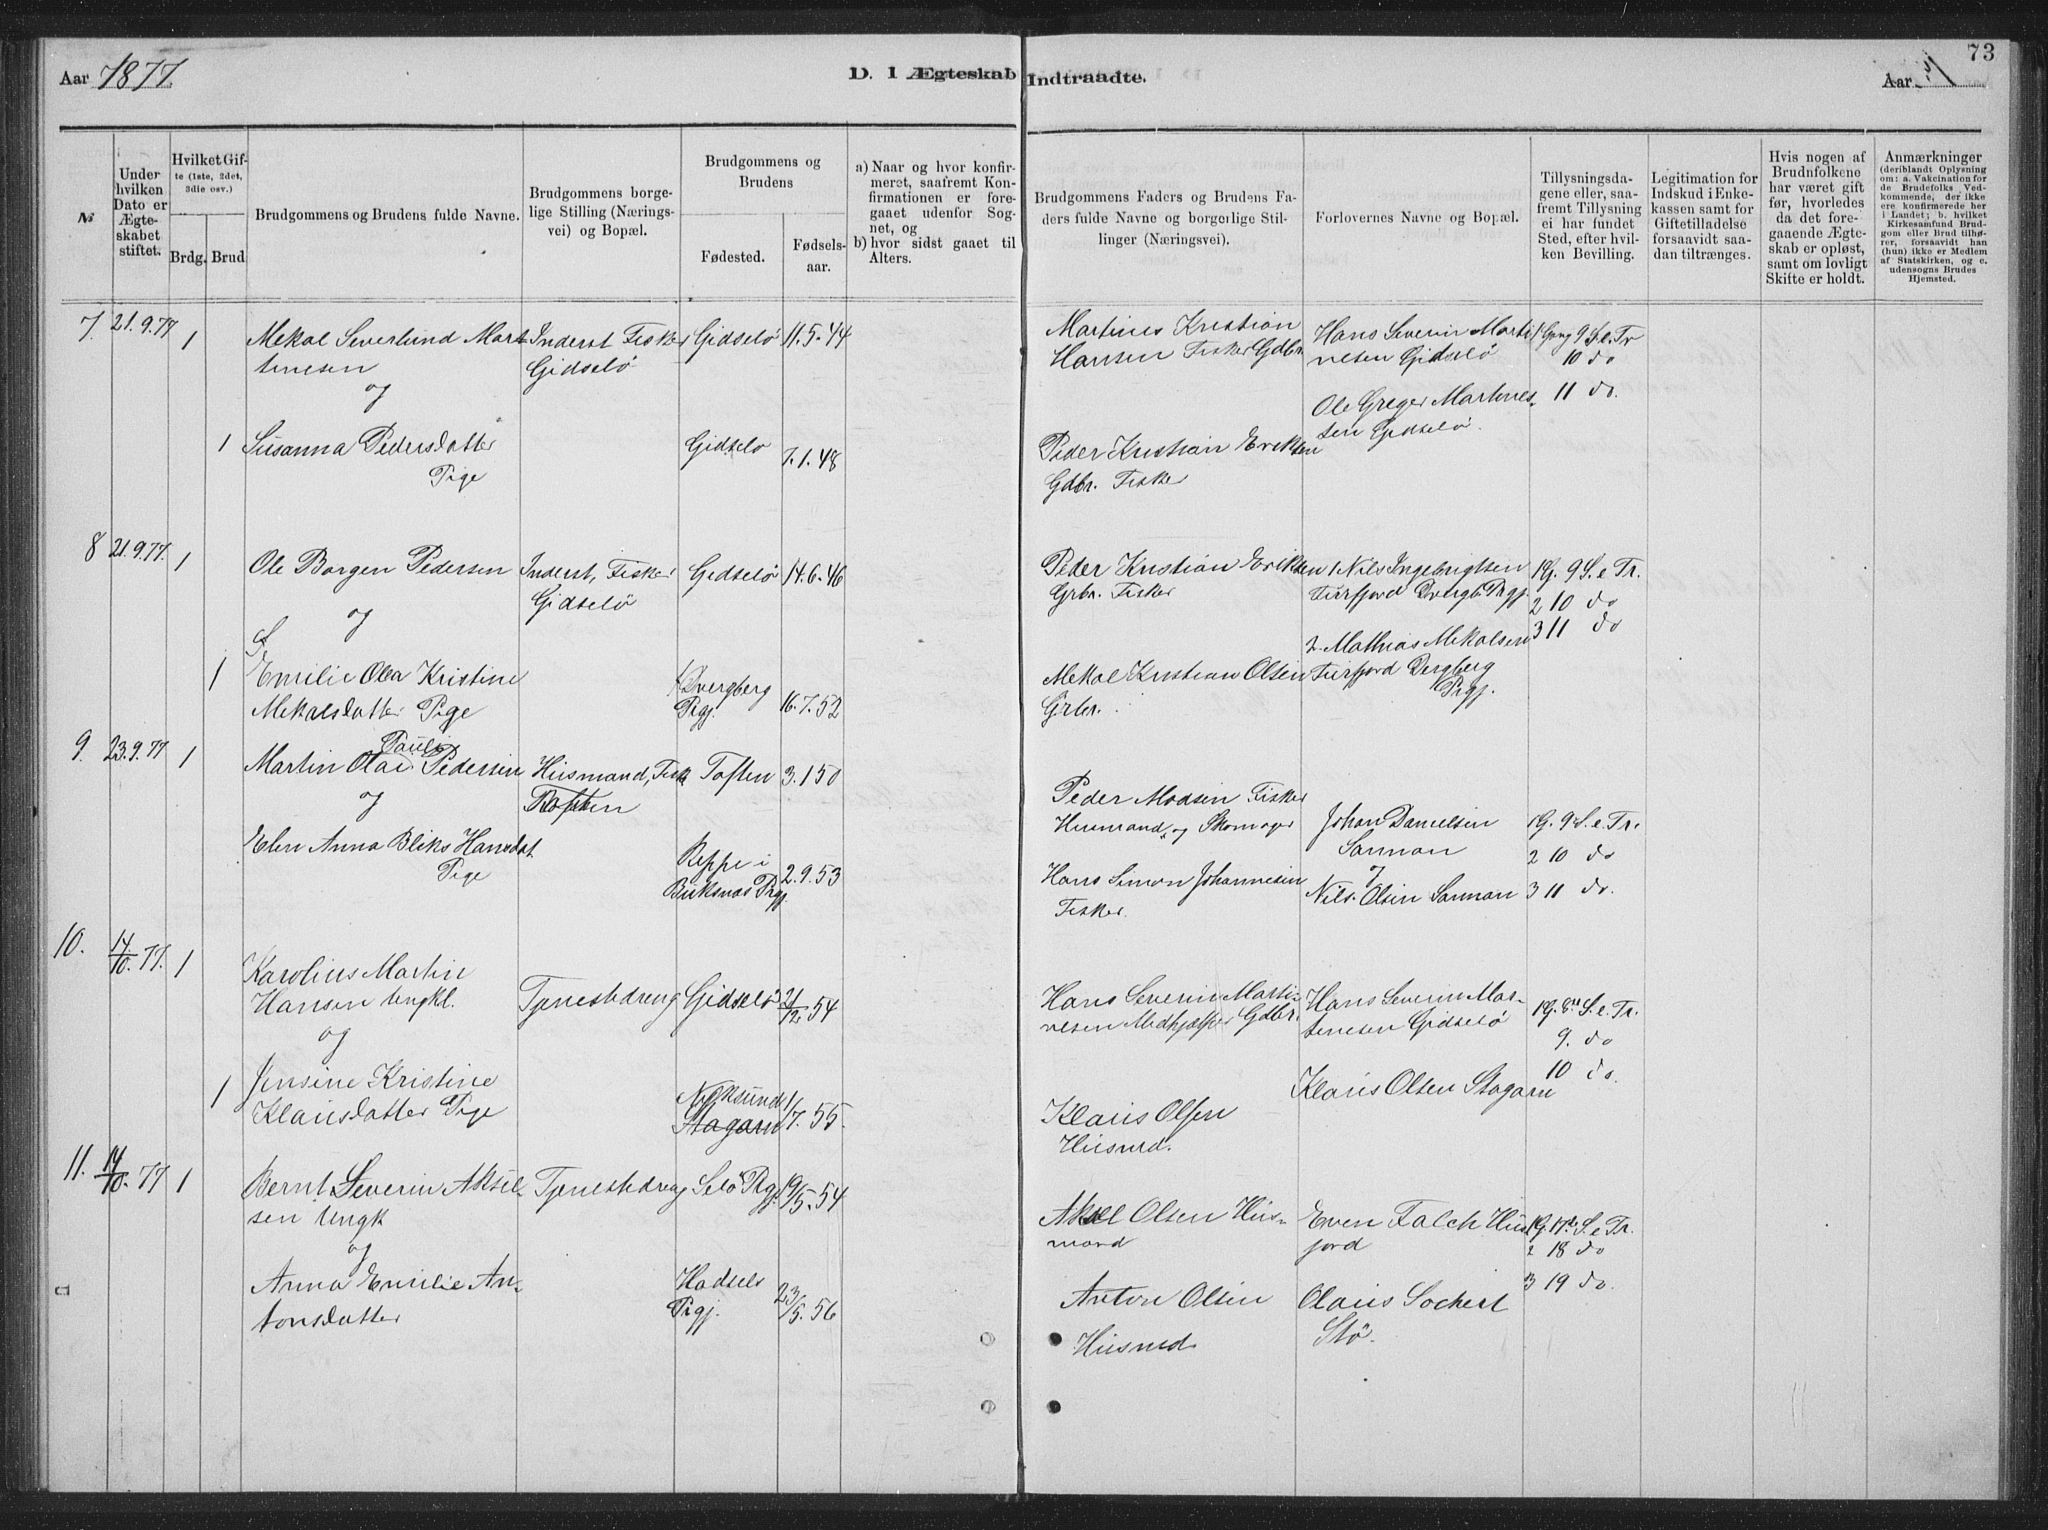 73
Aar 1877.
D. I Ægteskab Indtraadte.
Aar
№
Under hvilken Dato er Ægteskabet stiftet.
Hvilket Gifte (1ste, 2det, 3die osv.)
Brdg.
Brud
Brudgommens og Brudens fulde Navne.
Brudgommens borgelige Stilling (Næringsvei) og Bopæl.
Brudgommens og Brudens
Fødested.
Fødselsaar.
a) Naar og hvor konfirmeret, saafremt Konfirmationen er foregaaet udenfor Sognet, og
b) hvor sidst gaaet til Alters.
Brudgommens Faders og Brudens Faders fulde Navne og borgerlige Stillinger (Næringsvei).
Forlovernes Navne og Bopæl.
Tillysningsdagene eller, saafremt Tillysning ei har fundet Sted, efter hvilken Bevilling.
Legitimation for Indskud i Enkekassen samt for Giftetilladelse forsaavidt saadan tiltrænges.
Hvis nogen af Brudnfolkene har været gift før, hvorledes da det foregaaende Ægteskab er opløst, samt om lovligt Skifte er holdt.
Anmærkninger (deriblandt Oplysning om: a. Vakcination for de Brudefolks Vedkommende, der ikke ere konfirmerede her i Landet; b. hvilket Kirkesamfund Brudgom eller Brud tilhører, forsaavidt han (hun) ikke er Medlem af Statskirken, og c. udensogns Brudes Hjemsted.
7. 21.9.77 1 Mekal Severlund Mart- Inderst Fisker Gidselö 11.5.44
tinesen Gidselö
og
1 Susanna Pedersdatter Gidselo 7.1.48
Pige
Martines Kristian
Hansen Fisker Gdbr.
Hans Severin Marti- 1 Gang 9 S. e. Tr
nesen Gidselö 10 do
Ole Greger Martines- 11 do.
sen Gidselö.
Peder Kristian Eriksen
Gdbr. Fisker
8 21.9.77. 1 Ole Borgen Pedersen Inderst, Fisker Gidselö 14.6.46
Gidselö
og
1 Emilie Olea Kristine Dvergberg 16.7.52
Mekalsdatter Pige Prgj.
Peder Kristian Eriksen 1 Nils Ingebrigtsen 1 G. 9 S. e Tr.
Grbr. Fisker Dvergb. Prgj. 2 10 do
2. Mathias Mekalsen 3 11 do
Mekal Kristian Olsen
Grbr. Prgj.
9. 23.9.77 1 Martin Olai Pauli Pedersen Husmand, Fisk Toften 3.1 50
og Toften
Elen Anna Bliks Hansdat
Pige Reppe i 2.9.53
Buksnæs Prgj.
Peder Madsen Fisker
Husmand og Skomager Johan Danielsen 1 G. 9 S. e Tr.
Sannan 2 10 do
Hans Simon Johannesen og
Fisker. Nils Olsen Sannan 3 11 do.
10. 14/10. 77. 1 Karolius Martin
Hansen Ungkl. Tjenestedreng Gidselö 21/12 54
og
1 Jensine Kristine Niksund 1/7. 55.
Klausdatter Pige Stagarn
Hans Severin Marti- Hans Severin Mar- 1 G. 8de S. e. Tr.
nesen Medhjælper Gdbr. tinesen Gidselö 9. do
10 do.
Klaus Olsen Klaus Olsen Stagarn
Husmd.
11. 14/10. 77 1 Bernt Severin Aksel- Tjenestedreng Selö Prgj. 19/5. 54
sen Ungk
og
Anna Emilie An- Hadsels 23/5. 56
tonsdatter Prgj.
Aksel Olsen Hus- Even Falch 1 G. 17de S. e Tr.
mand 2 18 do
3 19 do.
Anton Olsen Olaus Sochert
Husmd Stö.